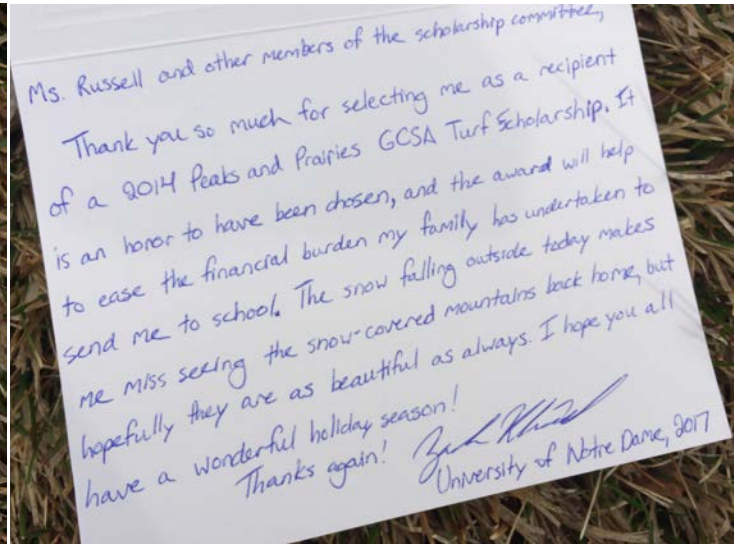 Ms. Russell and other members of the scholarship committee,
Thank you so much for selecting me as a recipient
of a 2014 Peaks and Prairies GCSA Turf Scholarship. It
is an honor to have been chosen, and the award will help
to ease the financial burden my family has undertaken to
send me to school. The snow falling outside today makes
me miss seeing the snow-covered mountains back home, but
hopefully they are as beautiful as always. I hope you all
have a wonderful holiday season!
Thanks again!
University of Notre Dame, 2017